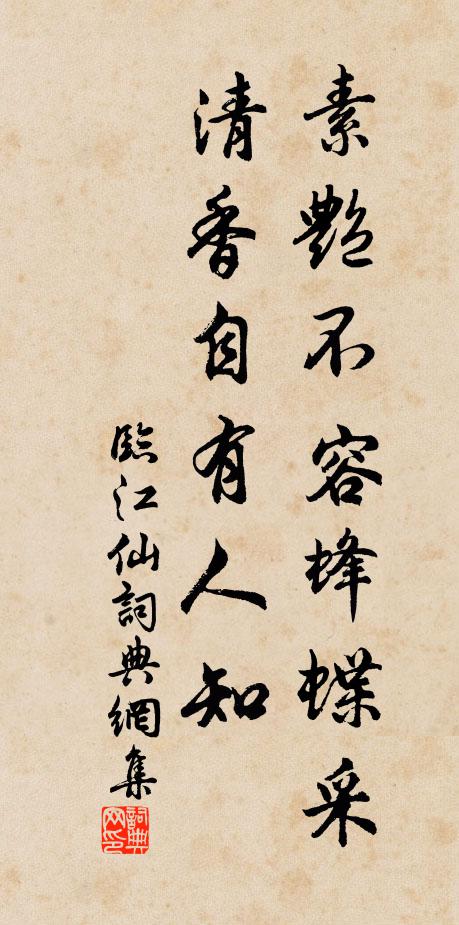 素艷不容蜂蝶采
清香自有人知
臨江仙詞典網集
詞典网印